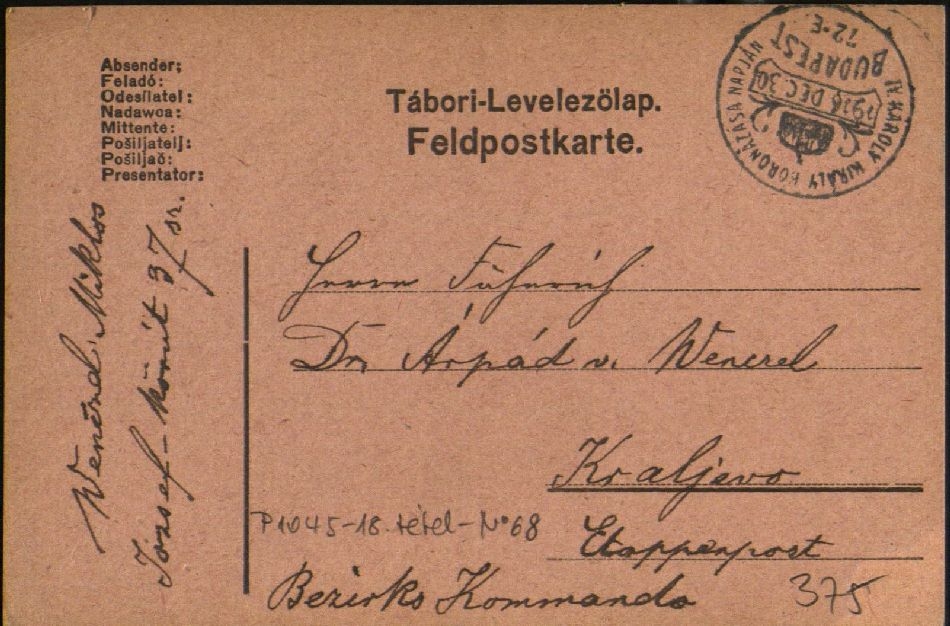 Absender:
Feladó:
Odesílatel:
Nadawca:
Mittente:
Pošiljatelj:
Pošiljač:
Presentator:
Tábori-Levelezőlap.
Feldpostkarte.
IV. KÁROLY KIRÁLY KORONÁZÁSA NAPJÁN
1916 DEC. 30
BUDAPEST
72-E
Wenczel Miklós
József-körút 37 sz.
Herrn Fähnrich
Dr. Árpád v. Wenczel
Kraljevo
P1045-18. tétel-No 68
Etappenpost
Bezirks Kommando
375